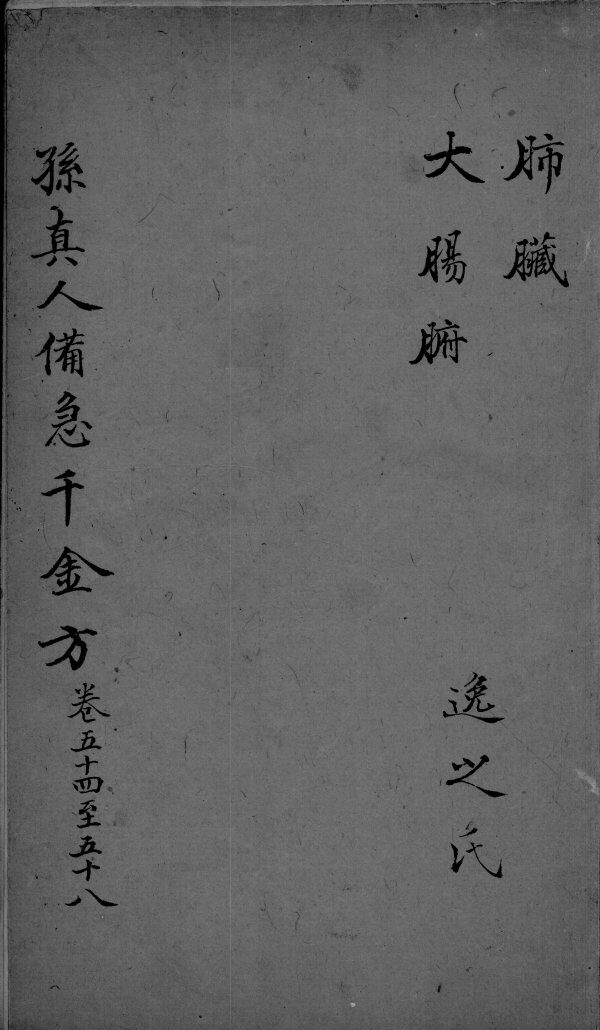 肺臓
大腸腑
逸之氏
孫真人備急千金方
卷五十四至五十八